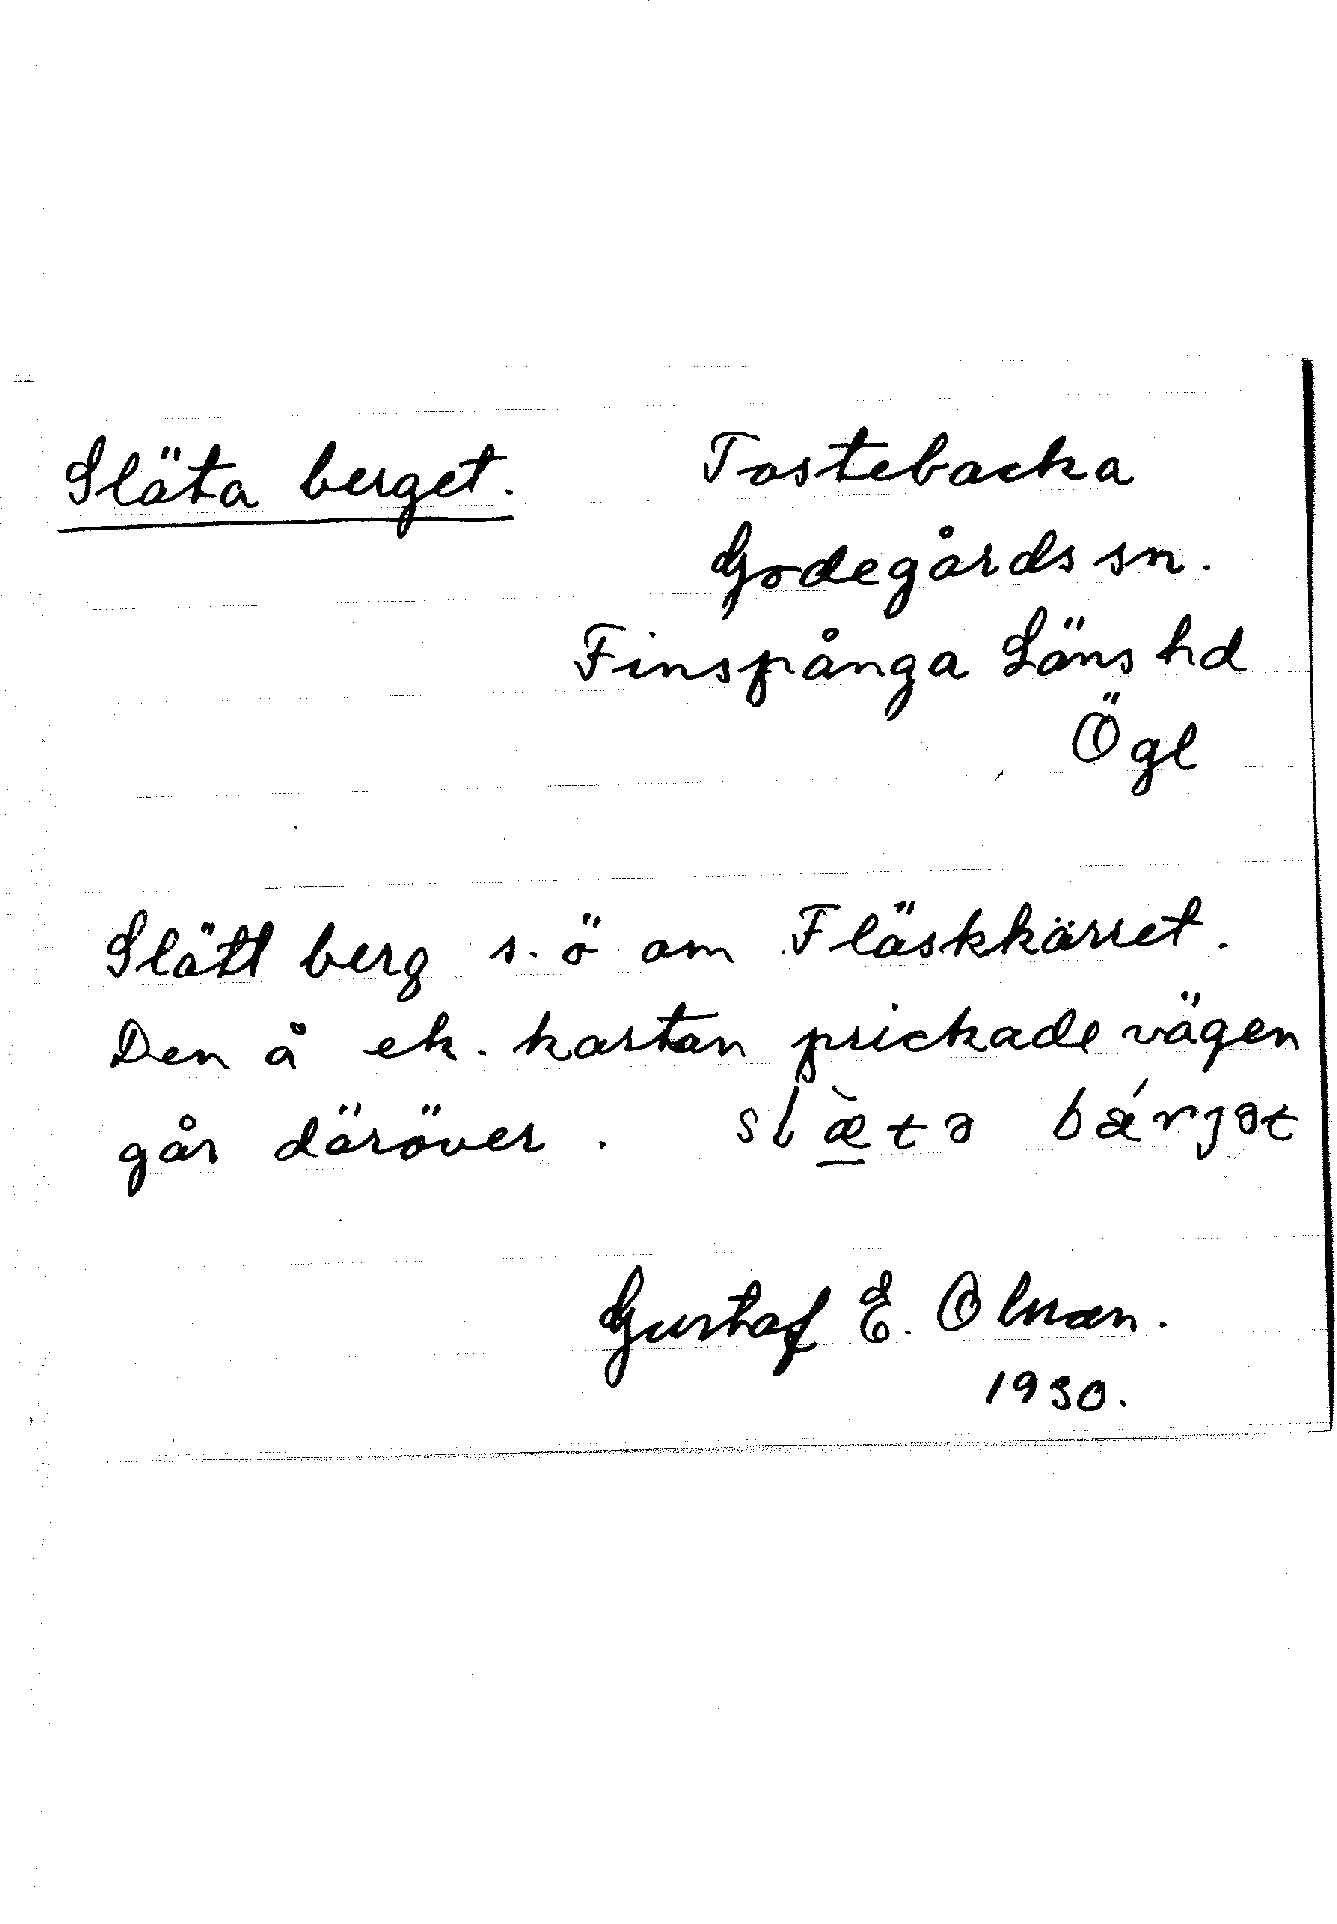 Släta berget. Tostebacka
Godegårds sn.
Finspånga Läns hd
Ögl
Slätt berg s. ö om Fläskkärret.
Den å ek. kartan prickade vägen
går däröver. slæ̀tə bǽrjət
Gustaf E. Olman.
1930.